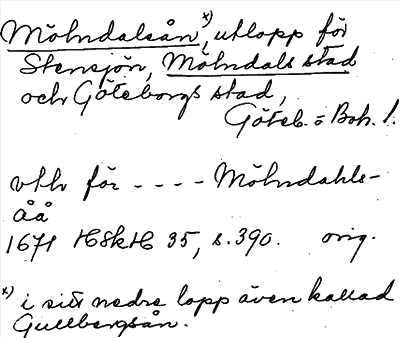 Mölndalsån x), utlopp för
Stensjön, Mölndals stad
och Göteborgs stad,
Göteb. o Boh. l.
vthr för - - - - Mölndahls-
Åå
1671 HSkH 35, s. 390. orig.
x) i sitt nedre lopp även kallad
Gullbergsån.